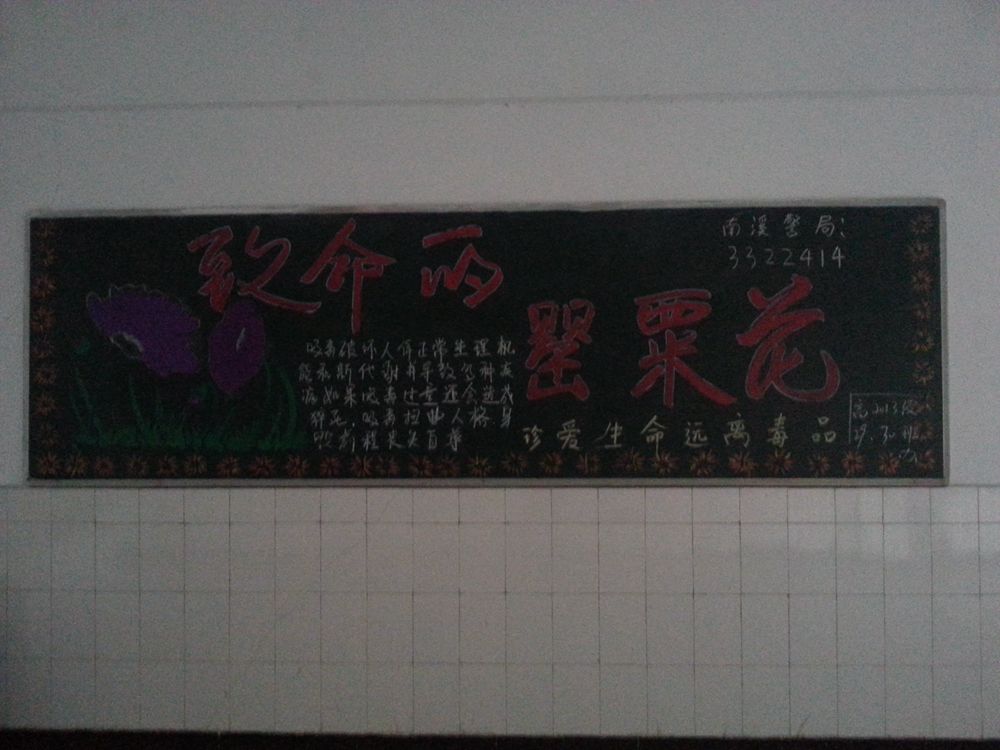 致命的
罂粟花
南溪警局:
3322414
吸毒破坏人体正常生理机
能和新代谢有导致多种疾
病如果吸毒过量还会造成
猝死,吸毒扭曲人格自
毁前程丧失自尊
珍爱生命远离毒品
高2013级
班
办